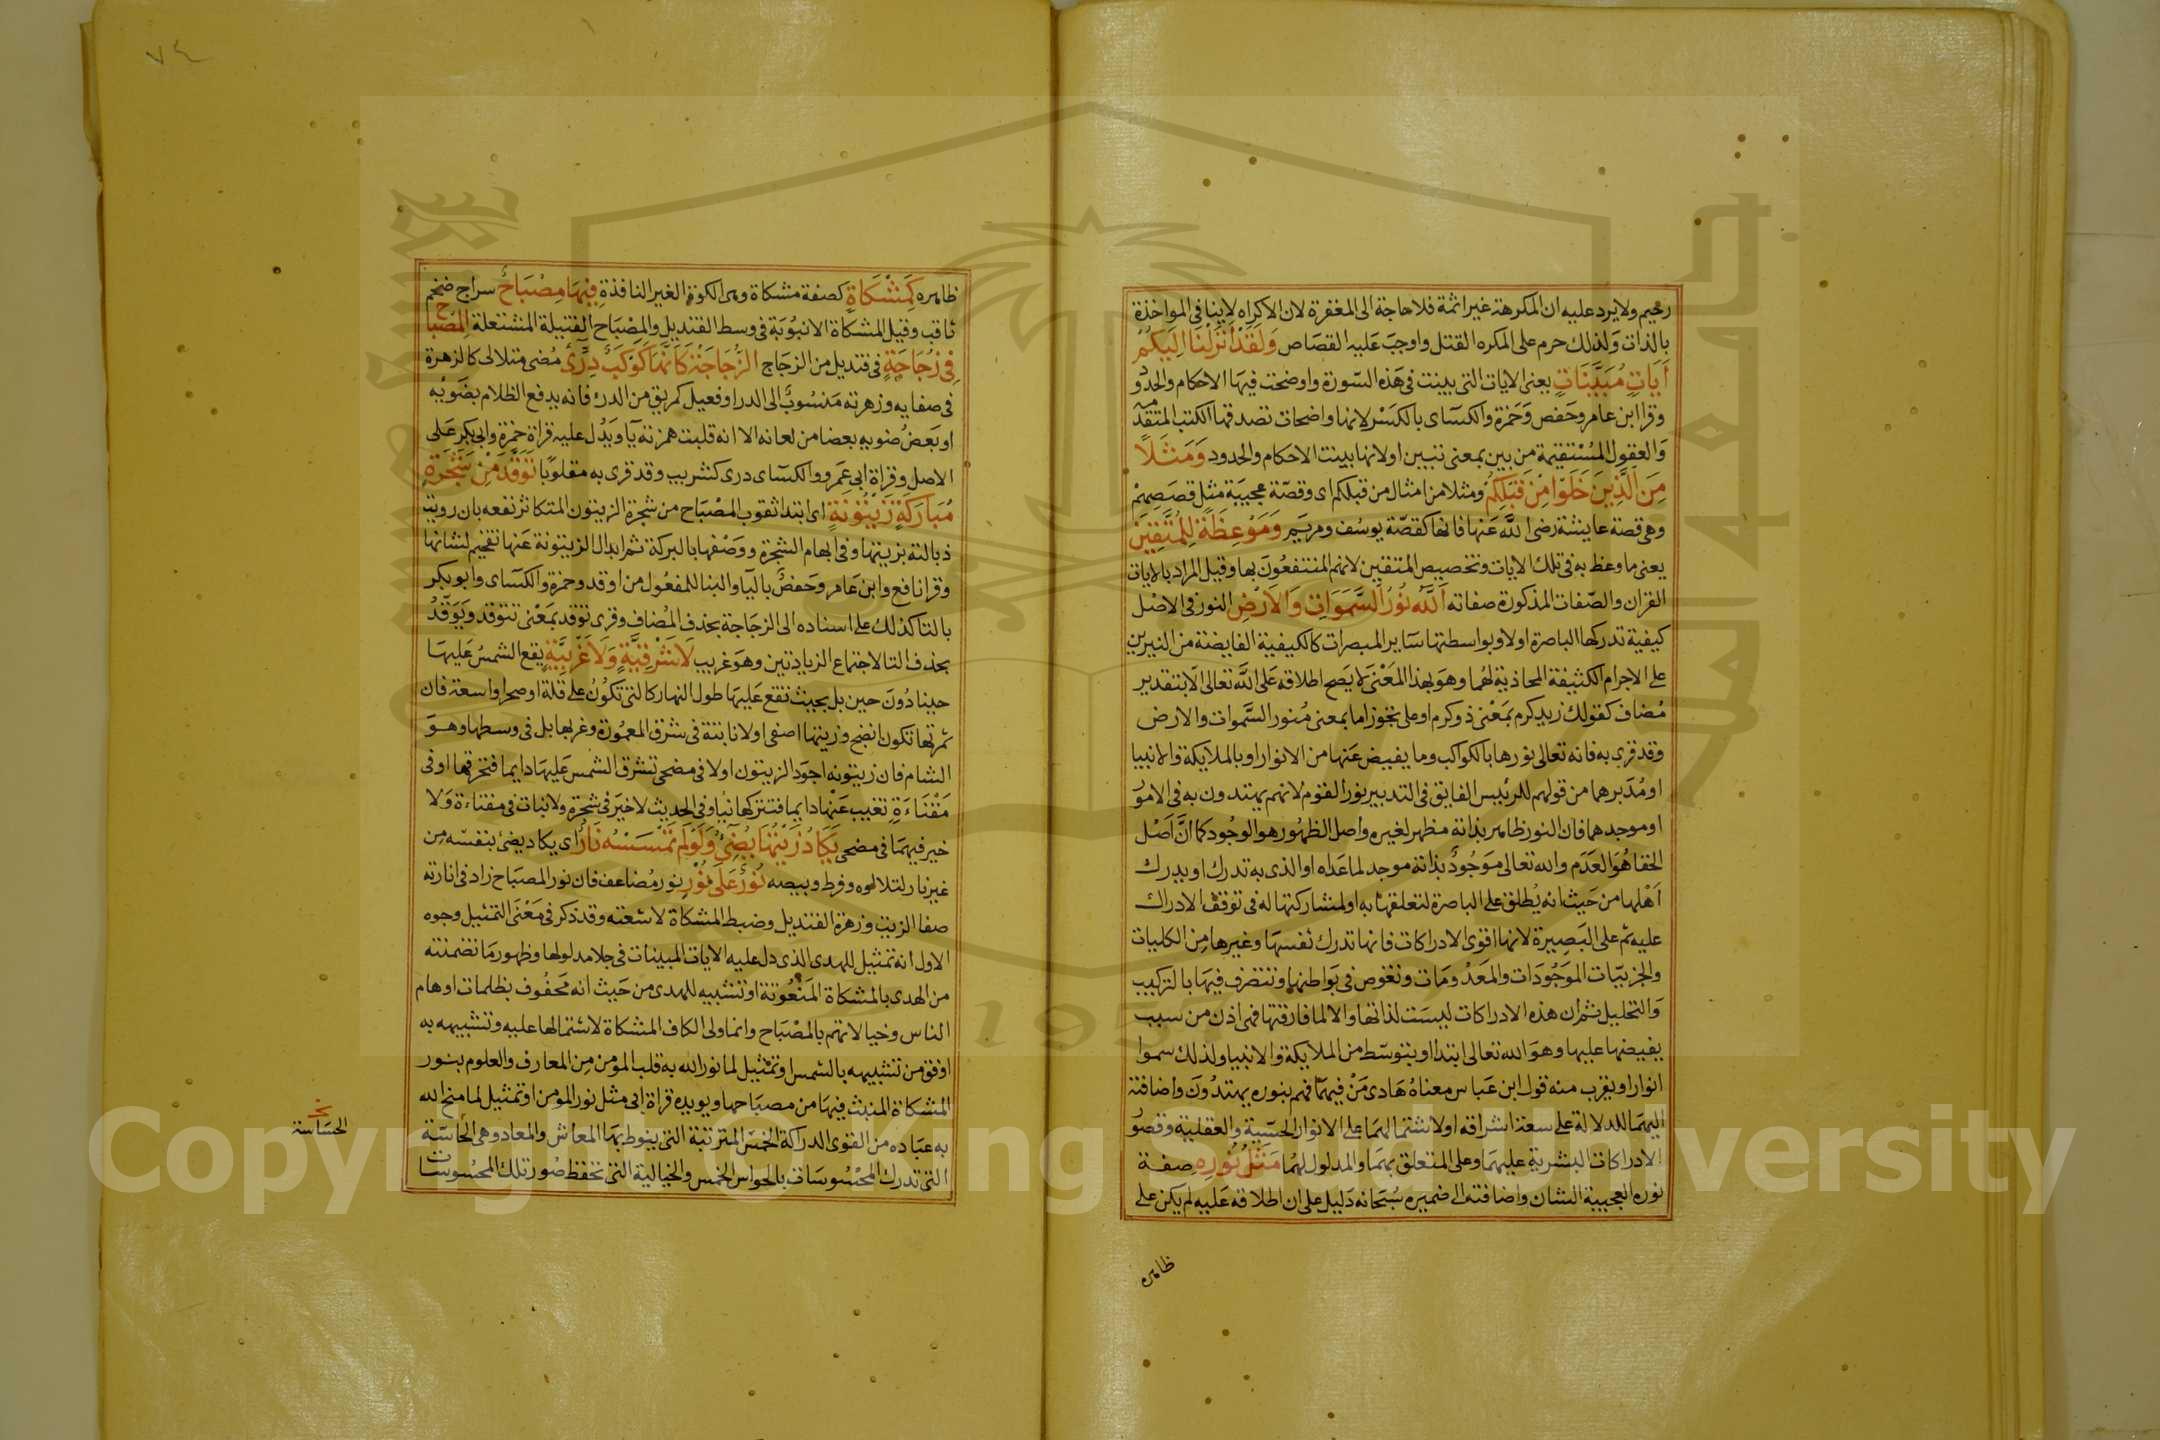 رحيم ولا يرد عليه ان المكرهة غير اثمة فلا حاجة الى المغفرة لان الاكراه لاينافى المواخذة
بالذات ولذلك حرم على المكره القتل واوجب عليه القصاص وَلَقَدْ أَنْزَلْنَا اِلَيْكُمْ
أَيَاتٍ مُبَيِّنَاتٍ يعنى الايات التى بينت فى هذه السّورة واوضحت فيها الاحكام والحدو
وقرا ابن عامر وحفص وحمزة والكساى بالكسر لانها واضحات تصدقها الكتب المتقدّ
والعقول المستقيمة من بين بمعنى تبين اولانها بينت الاحكام والحدود وَمَثَلًا
مِنَ الَّذِينَ خَلَوْا مِنْ قَبْلِكُمْ ومثلا من امثال من قبلكم اى وقصّة عجيبة مثل قصصهم
وهى قصة عايشة رضى اللّه عنها فانها كقصّة يوسف ومريم وَمَوْعِظَةً لِلْمُتَّقِينَ
يعنى ما وعظ به فى تلك الايات وتخصيص المتقين لانهم المنتفعون بها وقيل المراد بالايات
القران والصّفات المذكورة صفاته اَللَّهُ نُورُ السَّمَوَاتِ وَالْاَرْضِ النور فى الاصل
كيفية تدركها الباصرة اولا وبواسطتها ساير المبصرات كالكيفية الفايضة من النيرين
على الاجرام الكثيفة المحاذية لهما وهو بهذا المعنى لا يصح اطلاقه على اللّه تعالى الا بتقدير
مضاف كقولك زيد كرم بمعنى ذو كرم او على تجوز اما بمعنى منور السّموات والارض
وقد قرى به فانه تعالى نورها بالكواكب وما يفيض عنها من الانوار او بالملايكة والانبيا
او مدبرهما من قولهم للرئيس الفايق فى التدبير نور القوم لانهم يهتدون به فى الامور
او موجدهما فان النور ظاهر بذاته مظهر لغيره واصل الظهور هو الوجود كما انّ اصل
الخفا هو العدم والله تعالى موجود بذاته موجد لما عداه او الذى به تدرك او يدرك
اهلها من حيث انه يطلق على الباصرة لتعلقها به او لمشاركتها له فى توقف الادراك
عليه ثم على البصيرة لانها اقوى الادراكات فانها تدرك نفسها وغيرها من الكليات
والجزييات الموجودات والمعدومات وتغوص فى بواطنها وتتصرف فيها بالتركيب
والتحليل ثم ان هذه الادراكات ليست لذاتها والا لما فارقتها فهى اذن من سبب
يفيضها عليها وهو الله تعالى ابتدا او بتوسّط من الملايكة والانبيا ولذلك سموا
انوارا ويقرب منه قول ابن عباس معناه هادى من فيهما فهم بنوره يهتدون واضافته
اليهما للدلالة على سعة اشراقه او لاشتمالهما على الانوار الحسّية والعقلية وقصو
الادراكات البشرية عليهما وعلى المتعلق بهما والمدلول لهما مَثَلُ نُورِهِ صفة
نوره العجيبة الشان واضافته الى ضميره سبحانه دليل على ان اطلاقه عليه لم يكن على
ظاهره
٧٤
ظاهره كَمِشْكَاةٍ كصفة مشكاة وهى الكوة الغير النافذة فِيهَا مِصْبَاحٌ سراج ضخم
ثاقب وقيل المشكاة الانبوبة فى وسط القنديل والمصباح الفتيلة المشتعلة اَلْمِصْبَاحُ
فِى زُجَاجَةٍ فى قنديل من الزجاج الزُّجَاجَةُ كَاَنَّهَا كَوْكَبٌ دِرِّىٌّ مضى متلالى كالزهرة
فى صفايه وزهرته منسوب الى الدر او فعيل كمريق من الدرء فانه يدفع الظلام بضويه
او بعض ضويه بعضا من لعانه الا انه قلبت همزته يا ويدل عليه قراة حمزة وابى بكر على
الاصل وقراة ابى عمرو والكساى درى كشريب وقد قرى به مقلوبا تَوَقَّدَ مِنْ شَجَرَةٍ
مُبَارَكَةٍ زَيْتُونَةٍ اى ابتدا ثقوب المصباح من شجرة الزيتون المتكاثر نفعه بان رويت
ذبالته بزيتها وفى ابهام الشجرة ووصفها بالبركة ثم ابدال الزيتونة عنها تفخيم لشانها
وقرا نافع وابن عامر وحفص باليا والبنا للمفعول من اوقد وحمزة والكساى وابو بكر
بالتا كذلك على اسناده الى الزجاجة بحذف المضاف وقرى توقد بمعنى تتوقد ويوقد
بحذف التا لاجتماع الزيادتين وهو غريب لَا شَرْقِيَّةٍ وَلَا غَرْبِيَّةٍ يقع الشمس عليها
حينا دون حين بل بحيث تقع عليها طول النهار كالتى تكون على قلة او صحرا واسعة فان
ثمرتها تكون انضج وزيتها اصفى او لا نابتة فى شرق المعمورة وغربها بل فى وسطها وهو
الشام فان زيتونه اجود الزيتون او لا فى مضحى تشرق الشمس عليها دايما فتحرقها او فى
مقناءة تغيب عنها دايما فتتركها نيا وفى الحديث لا خير فى شجرة ولا نبات فى مقناءة ولا
خير فيهما فى مضحى يَكَادُ زَيْتُهَا يُضِىءُ وَلَوْ لَمْ تَمْسَسْهُ نَارٌ اى يكاد يضئ بنفسه من
غير نار لتلالوه وفرط وبيصه نُورٌ عَلَى نُورٍ نور مضاعف فان نور المصباح زاد فى انارته
صفا الزيت وزهرة القنديل وضبط المشكاة لاشعته وقد ذكر فى معنى التمثيل وجوه
الاول انه تمثيل للهدى الذى دل عليه الايات المبينات فى جلا مدلولها وظهور ما تضمنته
من الهدى بالمشكاة المنعوتة او تشبيه للهدى من حيث انه محفوف بظلمات اوهام
الناس وخيالاتهم بالمصباح وانما ولى الكاف المشكاة لاشتمالها عليه وتشبيهه به
اوفق من تشبيهه بالشمس او تمثيل لما نور الله به قلب المومن من المعارف والعلوم بنور
المشكاة المنبث فيها من مصباحها ويويده قراة ابى مثل نور المومن او تمثيل لما منح الله
به عباده من القوى الدراكة الخمس المترتبة التى ينوط بها المعاش والمعاد وهى الحاسّة
التى تدرك المحسوسات بالحواس الخمس والخيالية التى تحفظ صور تلك المحسوسات
الحساسة
Copyright © King Saud University
1957